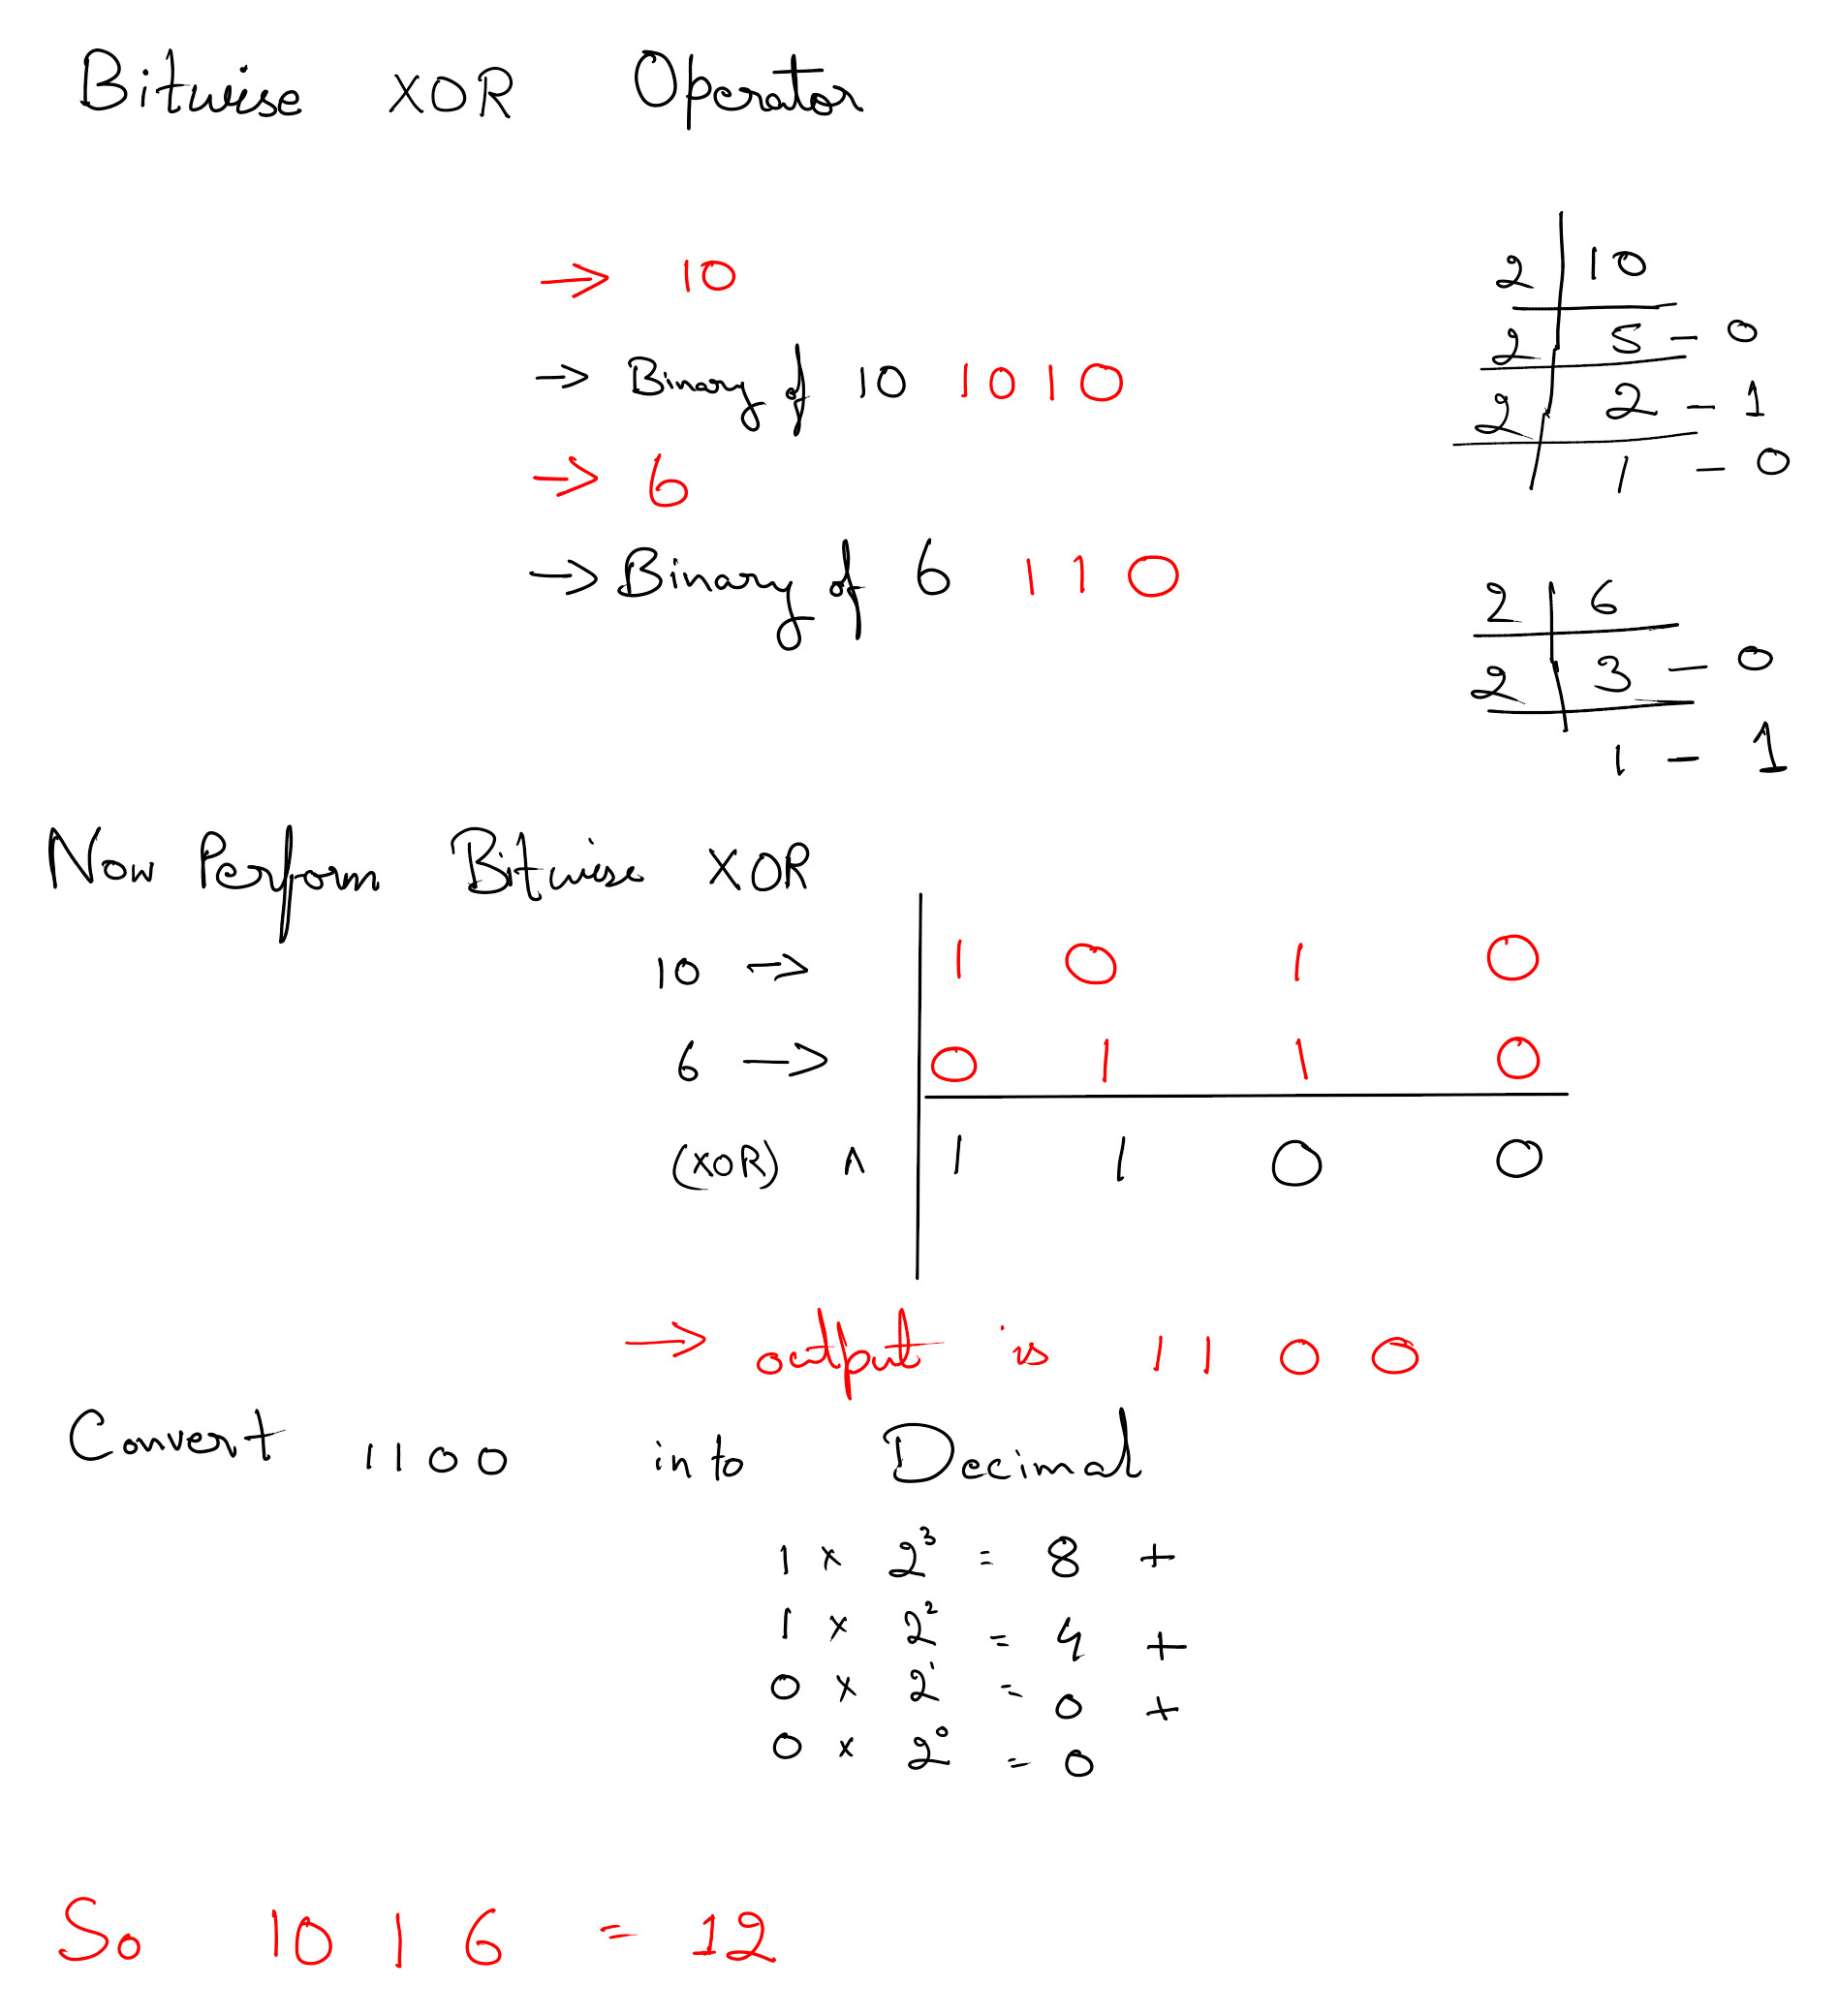 Bitwise XOR Operator
→ 10
→ Binary of 10 1010
→ 6
→ Binary of 6 110
2 | 10
2 | 5 - 0
2 | 2 - 1
| 1 - 0
2 | 6
2 | 3 - 0
1 - 1
Now Perform Bitwise XOR
10 → | 1 0 1 0
6 → | 0 1 1 0
(XOR) ^ | 1 1 0 0
→ output is 1100
Convert 1100 into Decimal
1 × 2³ = 8 +
1 × 2² = 4 +
0 × 2¹ = 0 +
0 × 2⁰ = 0
So 10 | 6 = 12